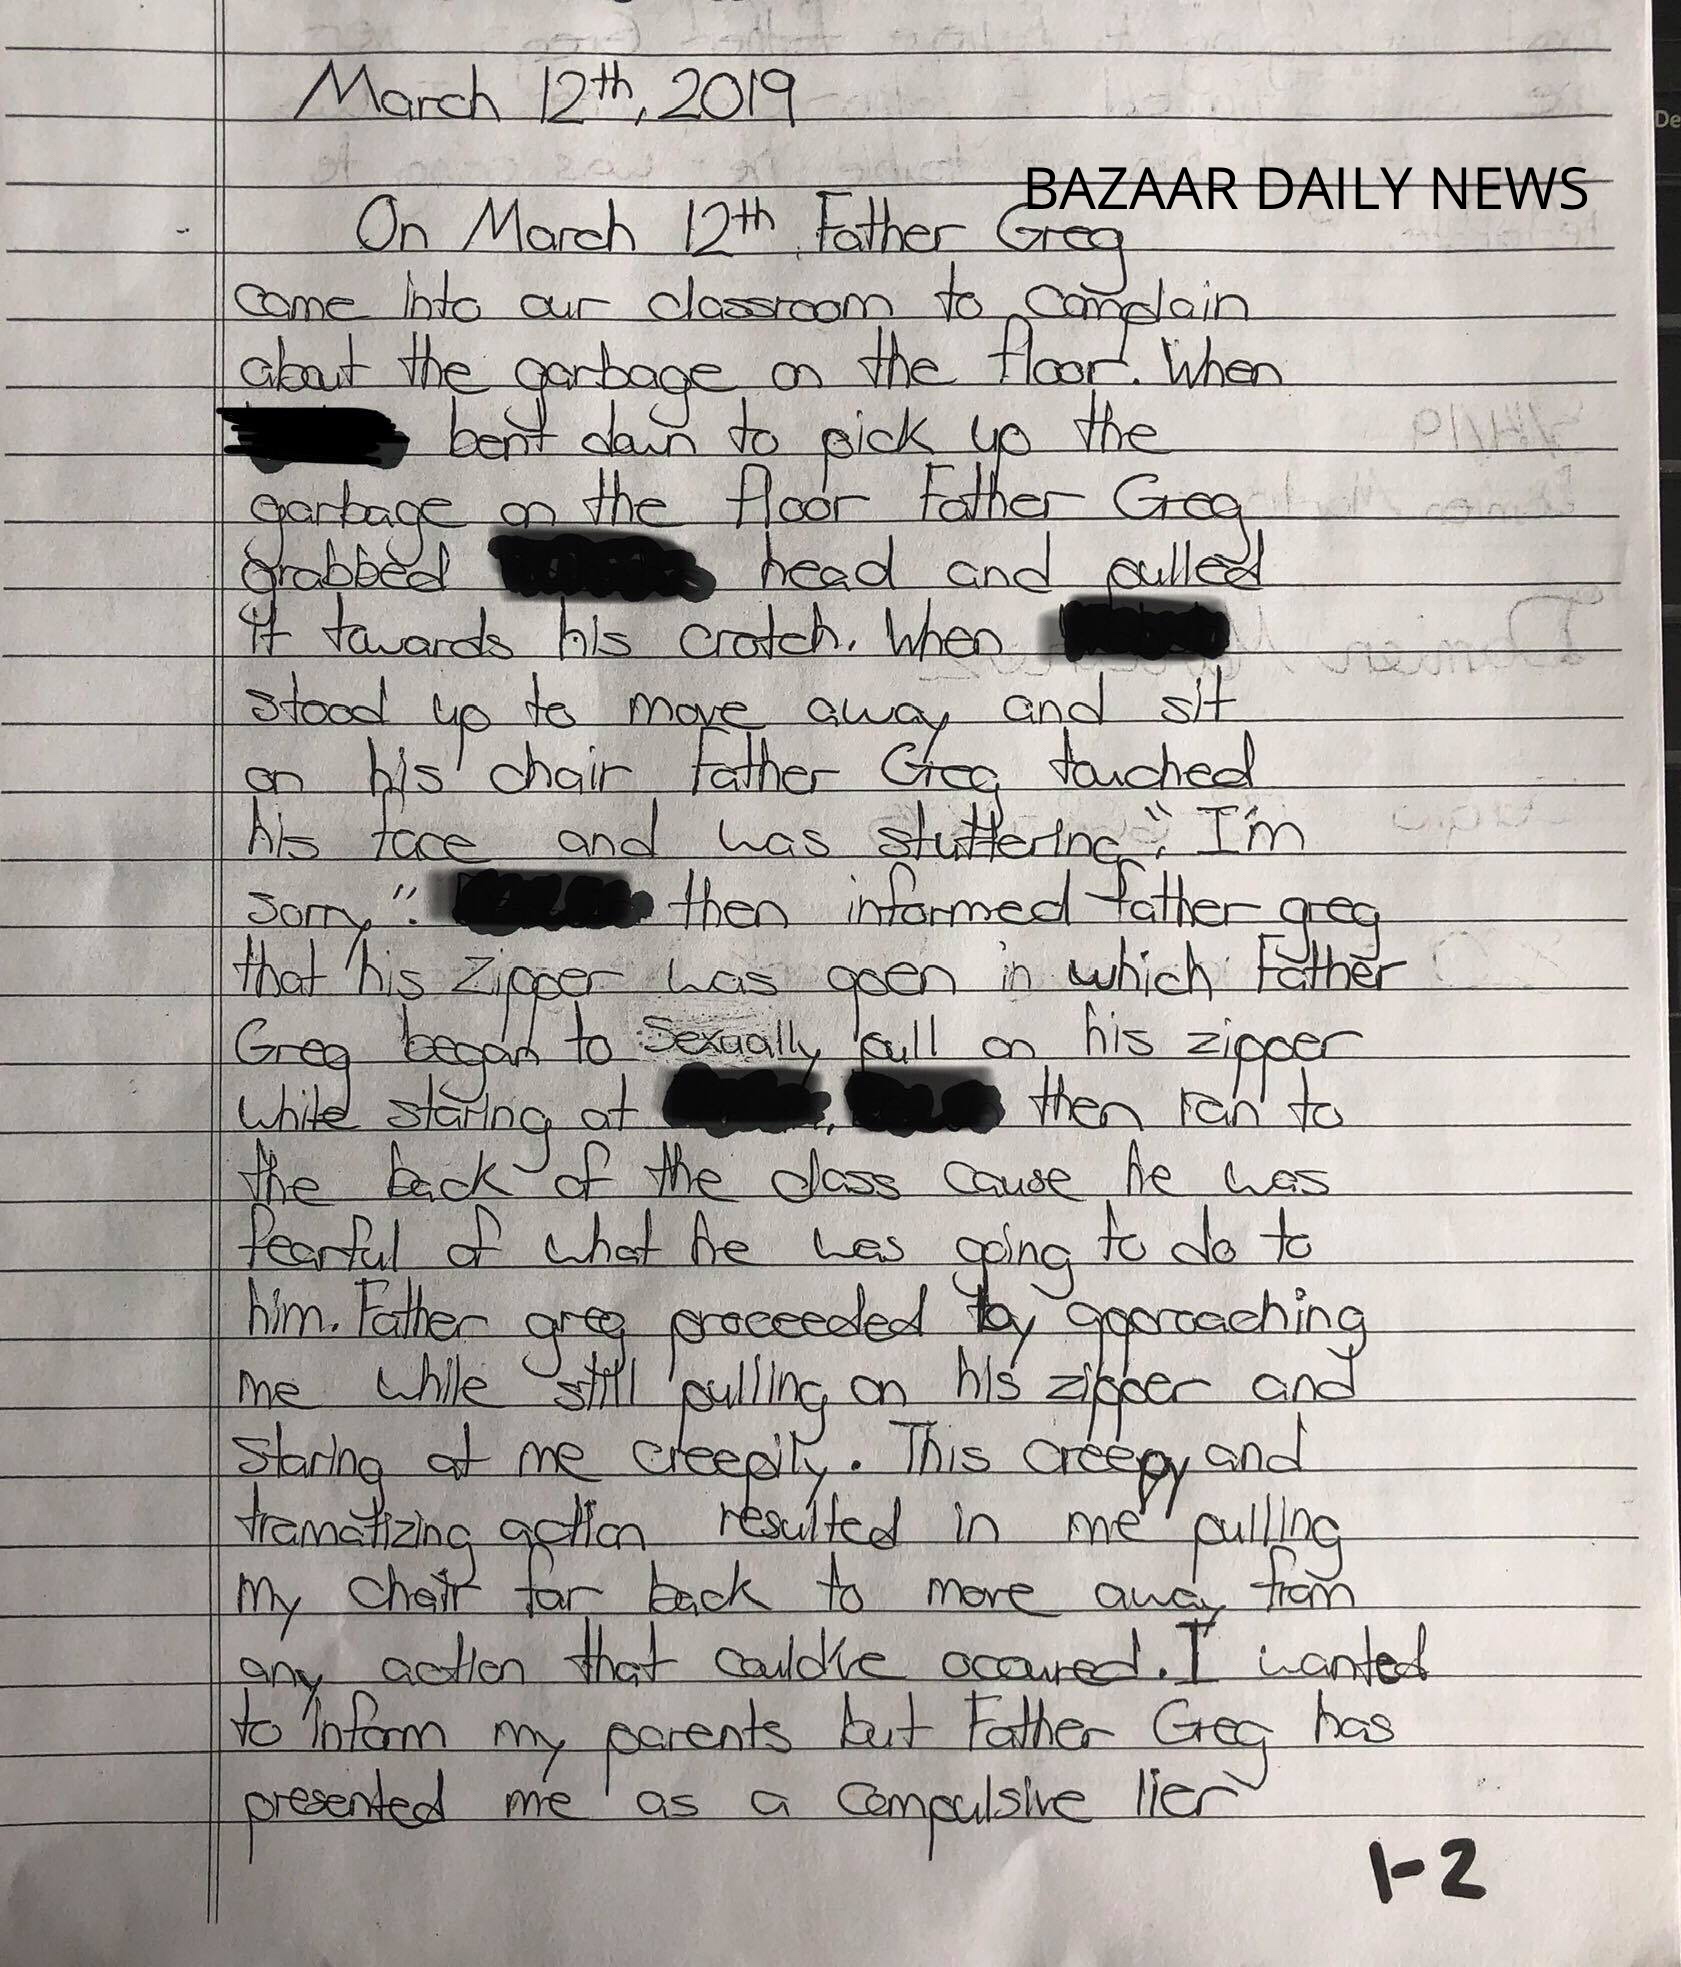 March 12th, 2019
BAZAAR DAILY NEWS
On March 12th Father Greg
came into our classroom to complain
about the garbage on the floor. When
bent down to pick up the
garbage on the floor Father Greg
grabbed head and pulled
it towards his crotch. When
stood up to move away and sit
on his chair Father Greg touched
his face and was stuttering "I'm
sorry". then informed father greg
that his zipper was open in which Father
Greg began to sexually pull on his zipper
while staring at . then ran to
the back of the class cause he was
fearful of what he was going to do to
him. Father greg proceeded by approaching
me while still pulling on his zipper and
staring at me creepily. This creepy and
tramatizing action resulted in me pulling
my chair far back to move away from
any action that could've occured. I wanted
to inform my parents but Father Greg has
presented me as a compulsive lier
1-2